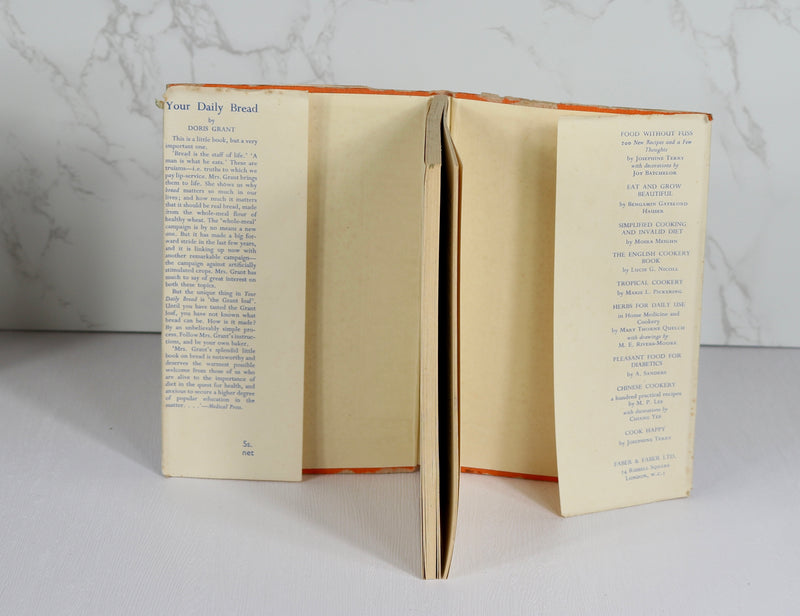 Your Daily Bread
by
DORIS GRANT
This is a little book, but a very
important one.
'Bread is the staff of life.' 'A
man is what he eats.' These are
truisms—i.e. truths to which we
pay lip-service. Mrs. Grant brings
them to life. She shows us why
bread matters so much in our
lives; and how much it matters
that it should be real bread, made
from the whole-meal flour of
healthy wheat. The 'whole-meal'
campaign is by no means a new
one. But it has made a big for-
ward stride in the last few years,
and it is linking up now with
another remarkable campaign—
the campaign against artificially
stimulated crops. Mrs. Grant has
much to say of great interest on
both these topics.
But the unique thing in Your
Daily Bread is 'the Grant loaf'.
Until you have tasted the Grant
loaf, you have not known what
bread can be. How is it made?
By an unbelievably simple pro-
cess. Follow Mrs. Grant's instruc-
tions, and be your own baker.
'Mrs. Grant's splendid little
book on bread is noteworthy and
deserves the warmest possible
welcome from those of us who
are alive to the importance of
diet in the quest for health, and
anxious to secure a higher degree
of popular education in the
matter. . . .'—Medical Press.
5s.
net
FOOD WITHOUT FUSS
200 New Recipes and a Few
Thoughts
by JOSEPHINE TERRY
with decorations by
JOY BATCHELOR
EAT AND GROW
BEAUTIFUL
by BENJAMIN GAYELORD
HAUSER
SIMPLIFIED COOKING
AND INVALID DIET
by MOIRA MEIGHN
THE ENGLISH COOKERY
BOOK
by LUCIE G. NICOLL
TROPICAL COOKERY
by MARIE L. PICKERING
HERBS FOR DAILY USE
in Home Medicine and
Cookery
by MARY THORNE QUELCH
with drawings by
M. E. RIVERS-MOORE
PLEASANT FOOD FOR
DIABETICS
by A. SANDERS
CHINESE COOKERY
a hundred practical recipes
by M. P. LEE
with decorations by
CHIANG YEE
COOK HAPPY
by JOSEPHINE TERRY
FABER & FABER LTD.
24 RUSSELL SQUARE
LONDON, W.C.1